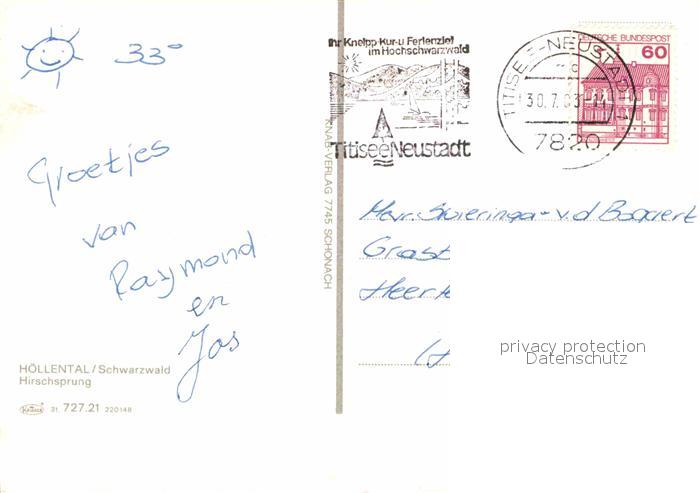 33°
Groetjes
van
Raymond
en
Jos
HÖLLENTAL/Schwarzwald
Hirschsprung
Krüger 31. 727.21 220148
KNAB-VERLAG 7745 SCHONACH
Ihr Kneipp-Kur-u Ferienziel
im Hochschwarzwald
Titisee Neustadt
TITISEE-NEUSTADT
30.7.83
7820
DEUTSCHE BUNDESPOST
60
v.d
Heer
privacy protection
Datenschutz